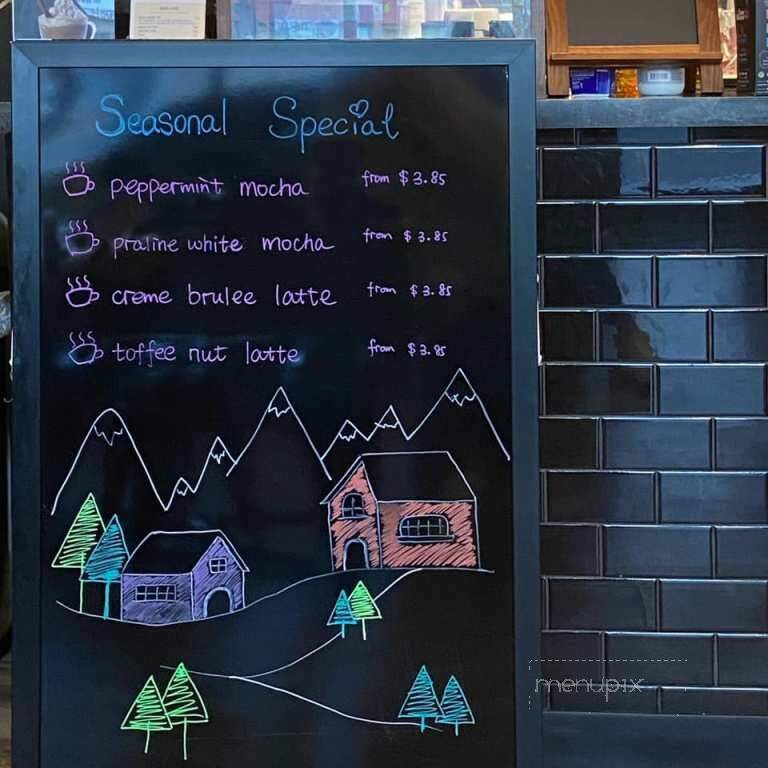 Seasonal Special
peppermint mocha from $3.85
praline white mocha from $3.85
creme brulee latte from $3.85
toffee nut latte from $3.85
menupix